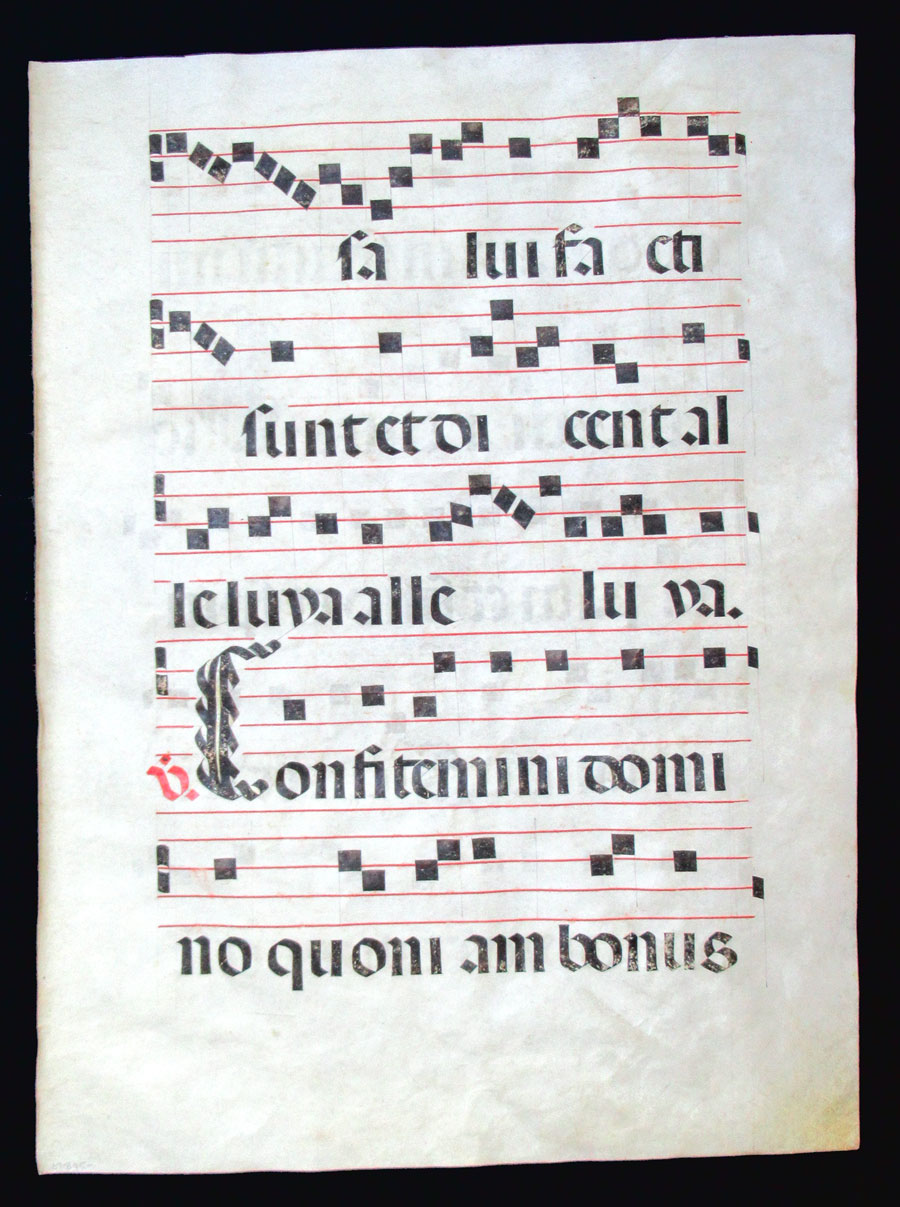 sa lui fa cti
sunt et di cent al
le luya alle lu ya.
℣. Confitemini domi
no quoni am bonus